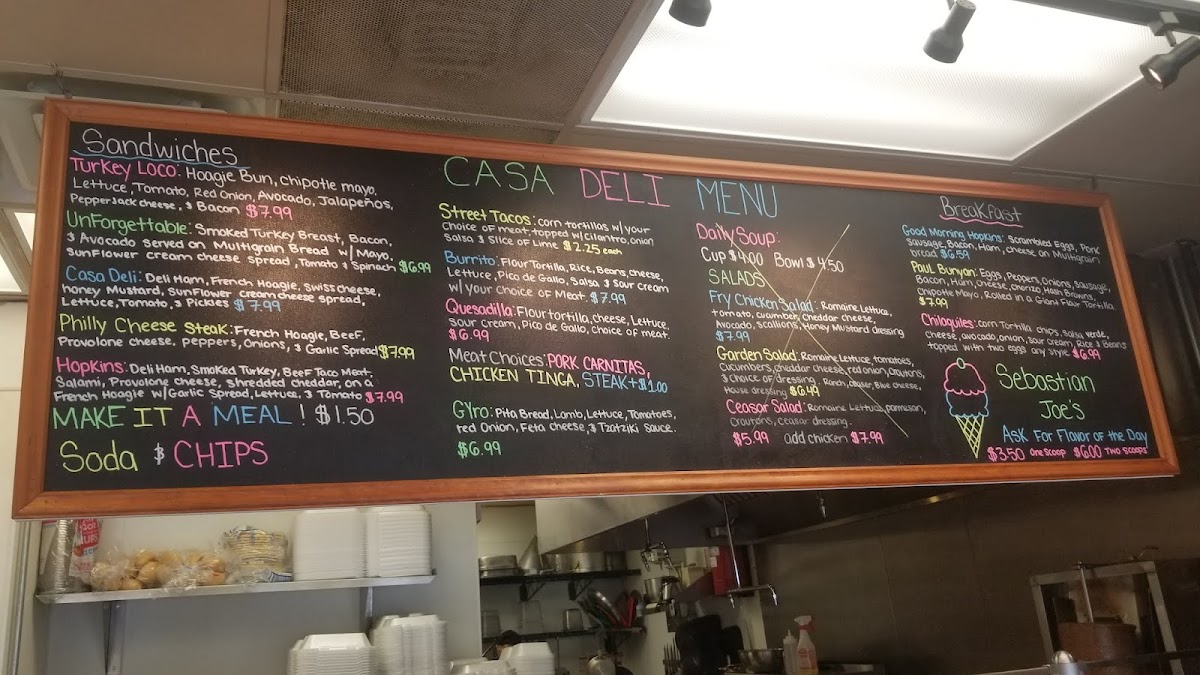 CASA DELI MENU
Sandwiches
Turkey Loco: Hoagie Bun, chipotle mayo,
Lettuce, Tomato, Red Onion, Avocado, Jalapeños,
Pepper Jack cheese, & Bacon $7.99
UnForgettable: Smoked Turkey Breast, Bacon,
& Avocado served on Multigrain Bread w/ Mayo,
Sunflower cream cheese spread, Tomato & Spinach $6.99
Casa Deli: Deli Ham, French Hoagie, swiss cheese,
honey Mustard, Sunflower cream cheese spread,
Lettuce, Tomato, & Pickles $7.99
Philly Cheese Steak: French Hoagie, Beef,
Provolone cheese, peppers, Onions, & Garlic Spread $7.99
Hopkins: Deli Ham, Smoked Turkey, Beef Taco Meat,
Salami, Provolone cheese, shredded cheddar, on a
French Hoagie w/ Garlic Spread, Lettuce, & Tomato $7.99
MAKE IT A MEAL! $1.50
Soda & CHIPS
Street Tacos: corn tortillas w/ your
choice of meat, topped w/ Cilantro, onion
Salsa & Slice of Lime $2.25 each
Burrito: Flour Tortilla, Rice, Beans, cheese,
Lettuce, Pico de Gallo, Salsa & Sour cream
w/ your choice of Meat. $7.99
Quesadilla: Flour tortilla, cheese, Lettuce,
Sour cream, Pico de Gallo, choice of meat.
$6.99
Meat Choices: PORK CARNITAS,
CHICKEN TINGA, STEAK +$1.00
Gyro: Pita Bread, Lamb, Lettuce, Tomatoes,
red Onion, Feta cheese, & Tzatziki Sauce.
$6.99
Daily Soup:
Cup $4.00 Bowl $4.50
SALADS
Fry Chicken Salad: Romaine Lettuce,
tomato, cucumber, cheddar cheese,
Avocado, scallions, Honey Mustard dressing
$7.99
Garden Salad: Romaine Lettuce, tomatoes,
Cucumbers, cheddar cheese, red onion, croutons,
& choice of dressing. Ranch, ceasar, Blue cheese,
House dressing $6.99
Ceasar Salad: Romaine Lettuce, parmesan,
croutons, ceasar dressing.
$5.99 add chicken $7.99
Breakfast
Good Morning Hopkins: Scrambled Eggs, Pork
Sausage, Bacon, Ham, cheese on Multigrain
bread $6.59
Paul Bunyan: Eggs, Peppers, Onions, Sausage,
Bacon, Ham, cheese, chorizo, Hash Browns,
Chipotle Mayo, Rolled in a Giant Flour Tortilla.
$7.99
Chilaquiles: corn Tortilla chips, salsa verde,
cheese, avocado, onion, sour cream, Rice & Beans
topped with two eggs any style $6.99
Sebastian
Joe's
Ask For Flavor of the Day
$3.50 one scoop $6.00 two scoops